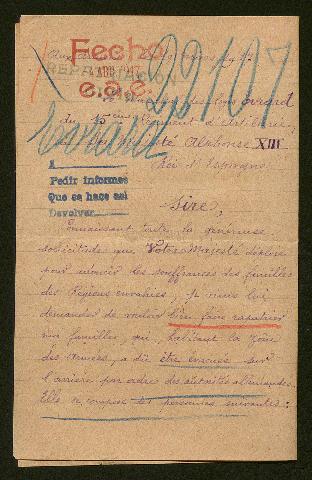 Fecha
4 ABR 1917
e.a.e.
REPATRIACION
22107
Evrard
du 15ème Régiment d'Artillerie,
à Sa Majesté Alphonse XIII
Roi d'Espagne
1
Pedir informes
Que se hace así
Devolver
Sire,
Connaissant toute la généreuse
sollicitude que Votre Majesté déploie
pour adoucir les souffrances des familles
des Régions envahies, je viens lui
demander de vouloir bien faire rapatrier
ma famille, qui, habitant la zone
des Armées, a dû être évacuée sur
l'arrière par ordre des autorités allemandes.
Elle se compose des personnes suivantes :